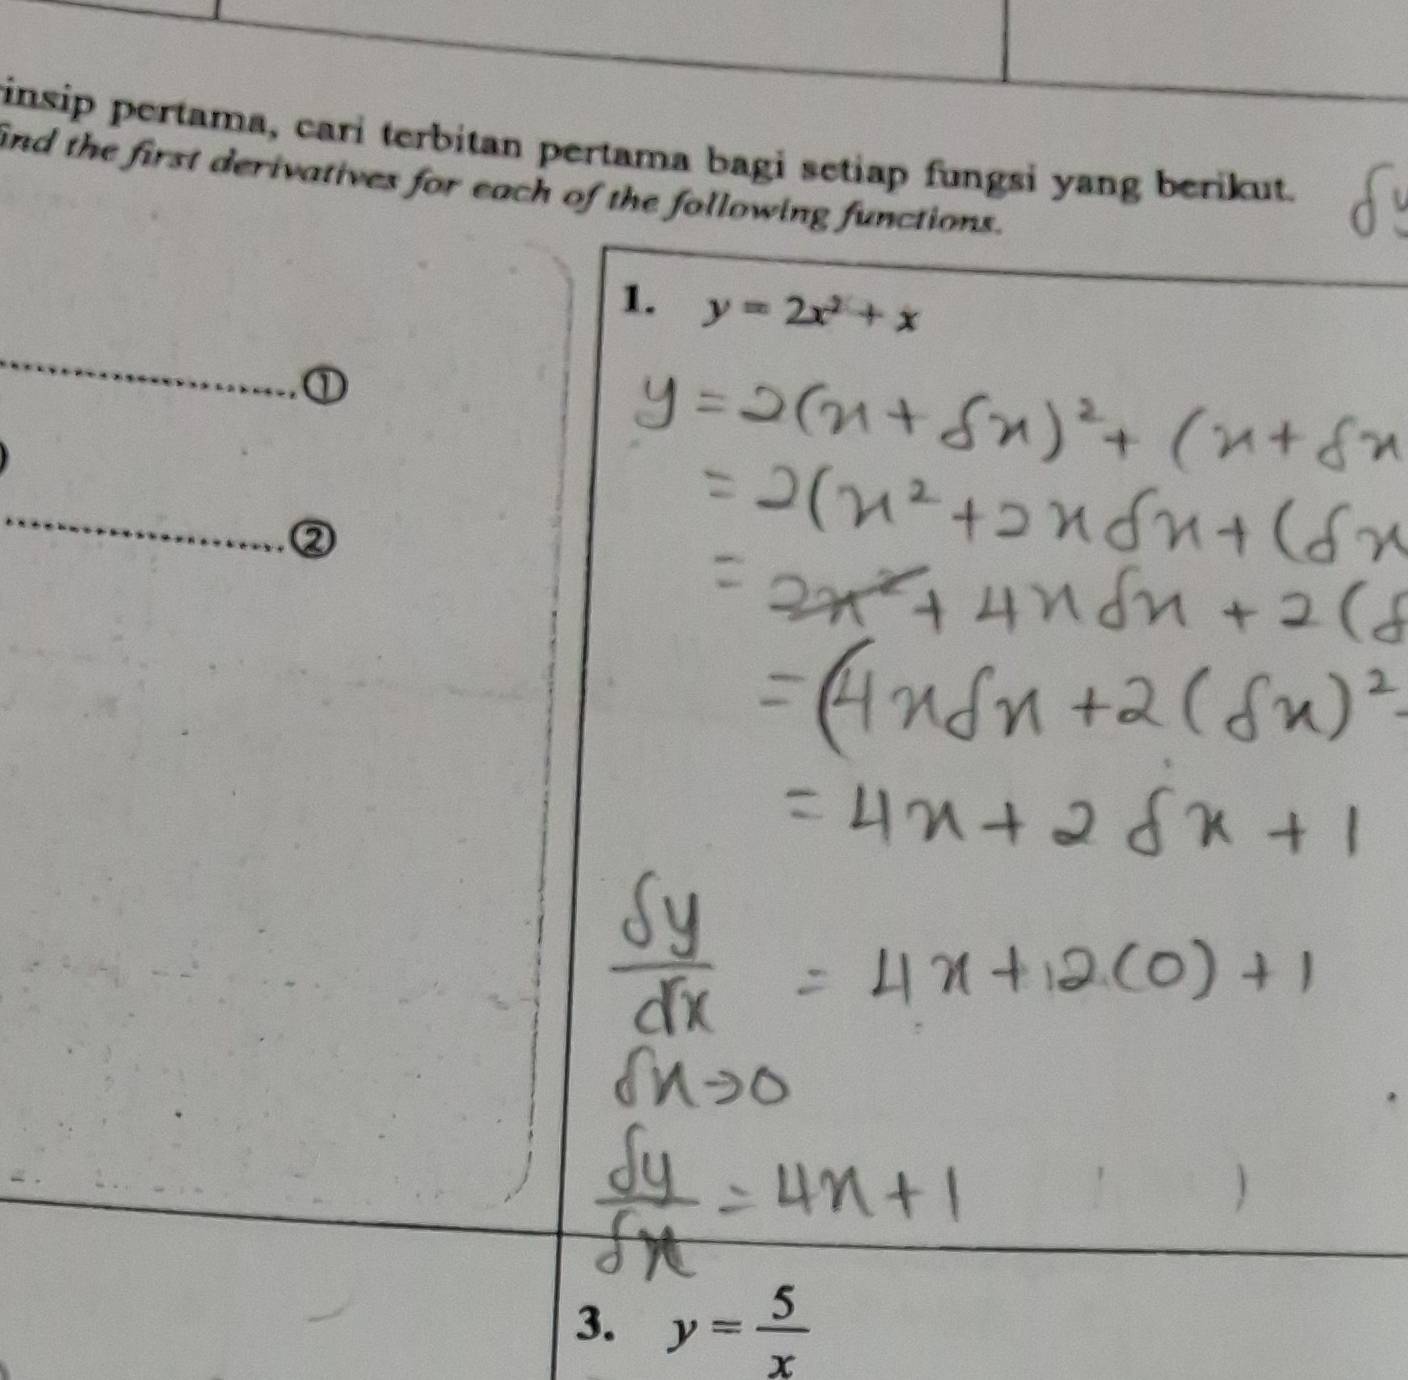 insip pertama, cari terbitan pertama bagi setiap fungsi yang berikut.
find the first derivatives for each of the following functions.
1. y = 2x² + x
①
y = 2(x + δx)² + (x + δx
)
= 2(x² + 2xδx + (δx
②
= 2x² + 4xδx + 2(δ
= (4xδx + 2(δx)²
= 4x + 2δx + 1
δy/dx = 4x + 2(0) + 1
δx→0
δy/δx = 4x + 1
3. y = 5/x